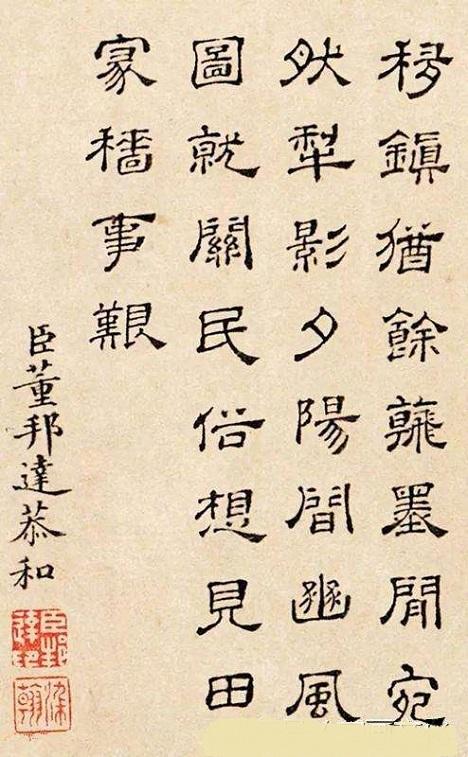 移鎮猶餘墨閒宛
然犁影夕陽間豳風
圖就關民俗想見田
家穡事艱
臣董邦達恭和
臣邦達印
染翰